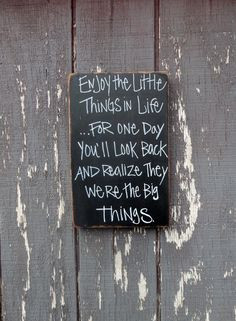 Enjoy the Little
Things in Life
...For one Day
You'll Look Back
And Realize They
Were the Big
Things.